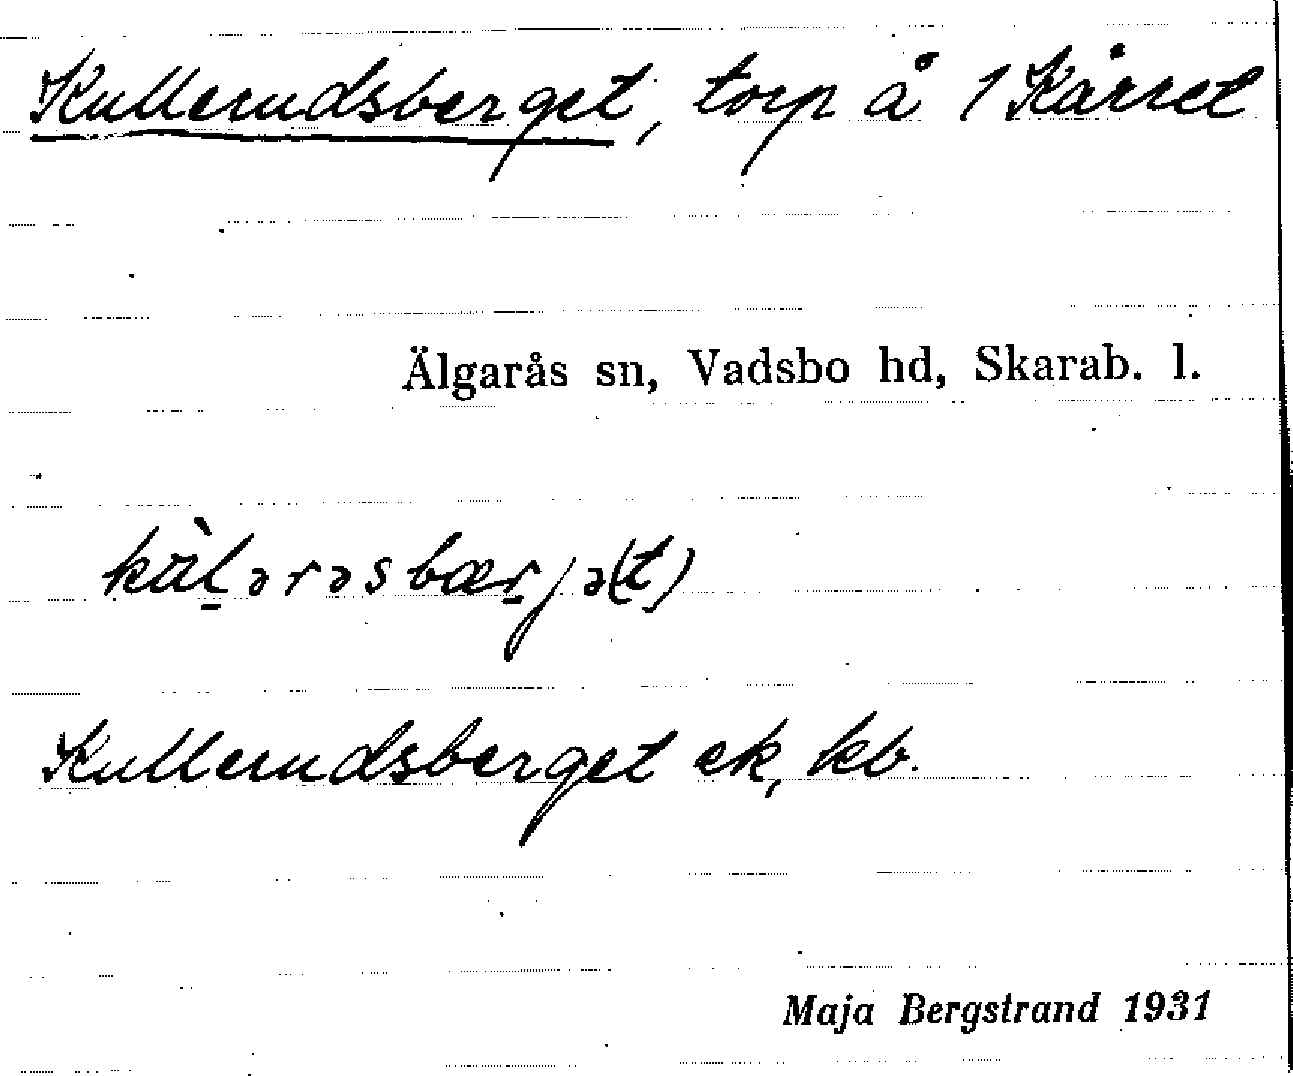 Kullerudsberget, torp å 1 Kärret
Älgarås sn, Vadsbo hd, Skarab. l.
Kullerudsberget ek, kb.
Maja Bergstrand 1931